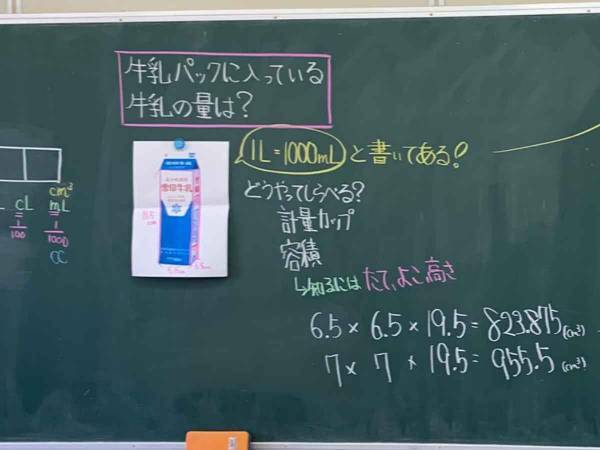 牛乳パックに入っている
牛乳の量は?
1L=1000mLと書いてある!
どうやってしらべる?
計量カップ
容積
↳知るには たて、よこ、高さ
6.5 × 6.5 × 19.5 = 823.875(cm³)
7 × 7 × 19.5 = 955.5 (cm³)
cm³
L cL mL
1/100 1/1000
CC
雪印牛乳